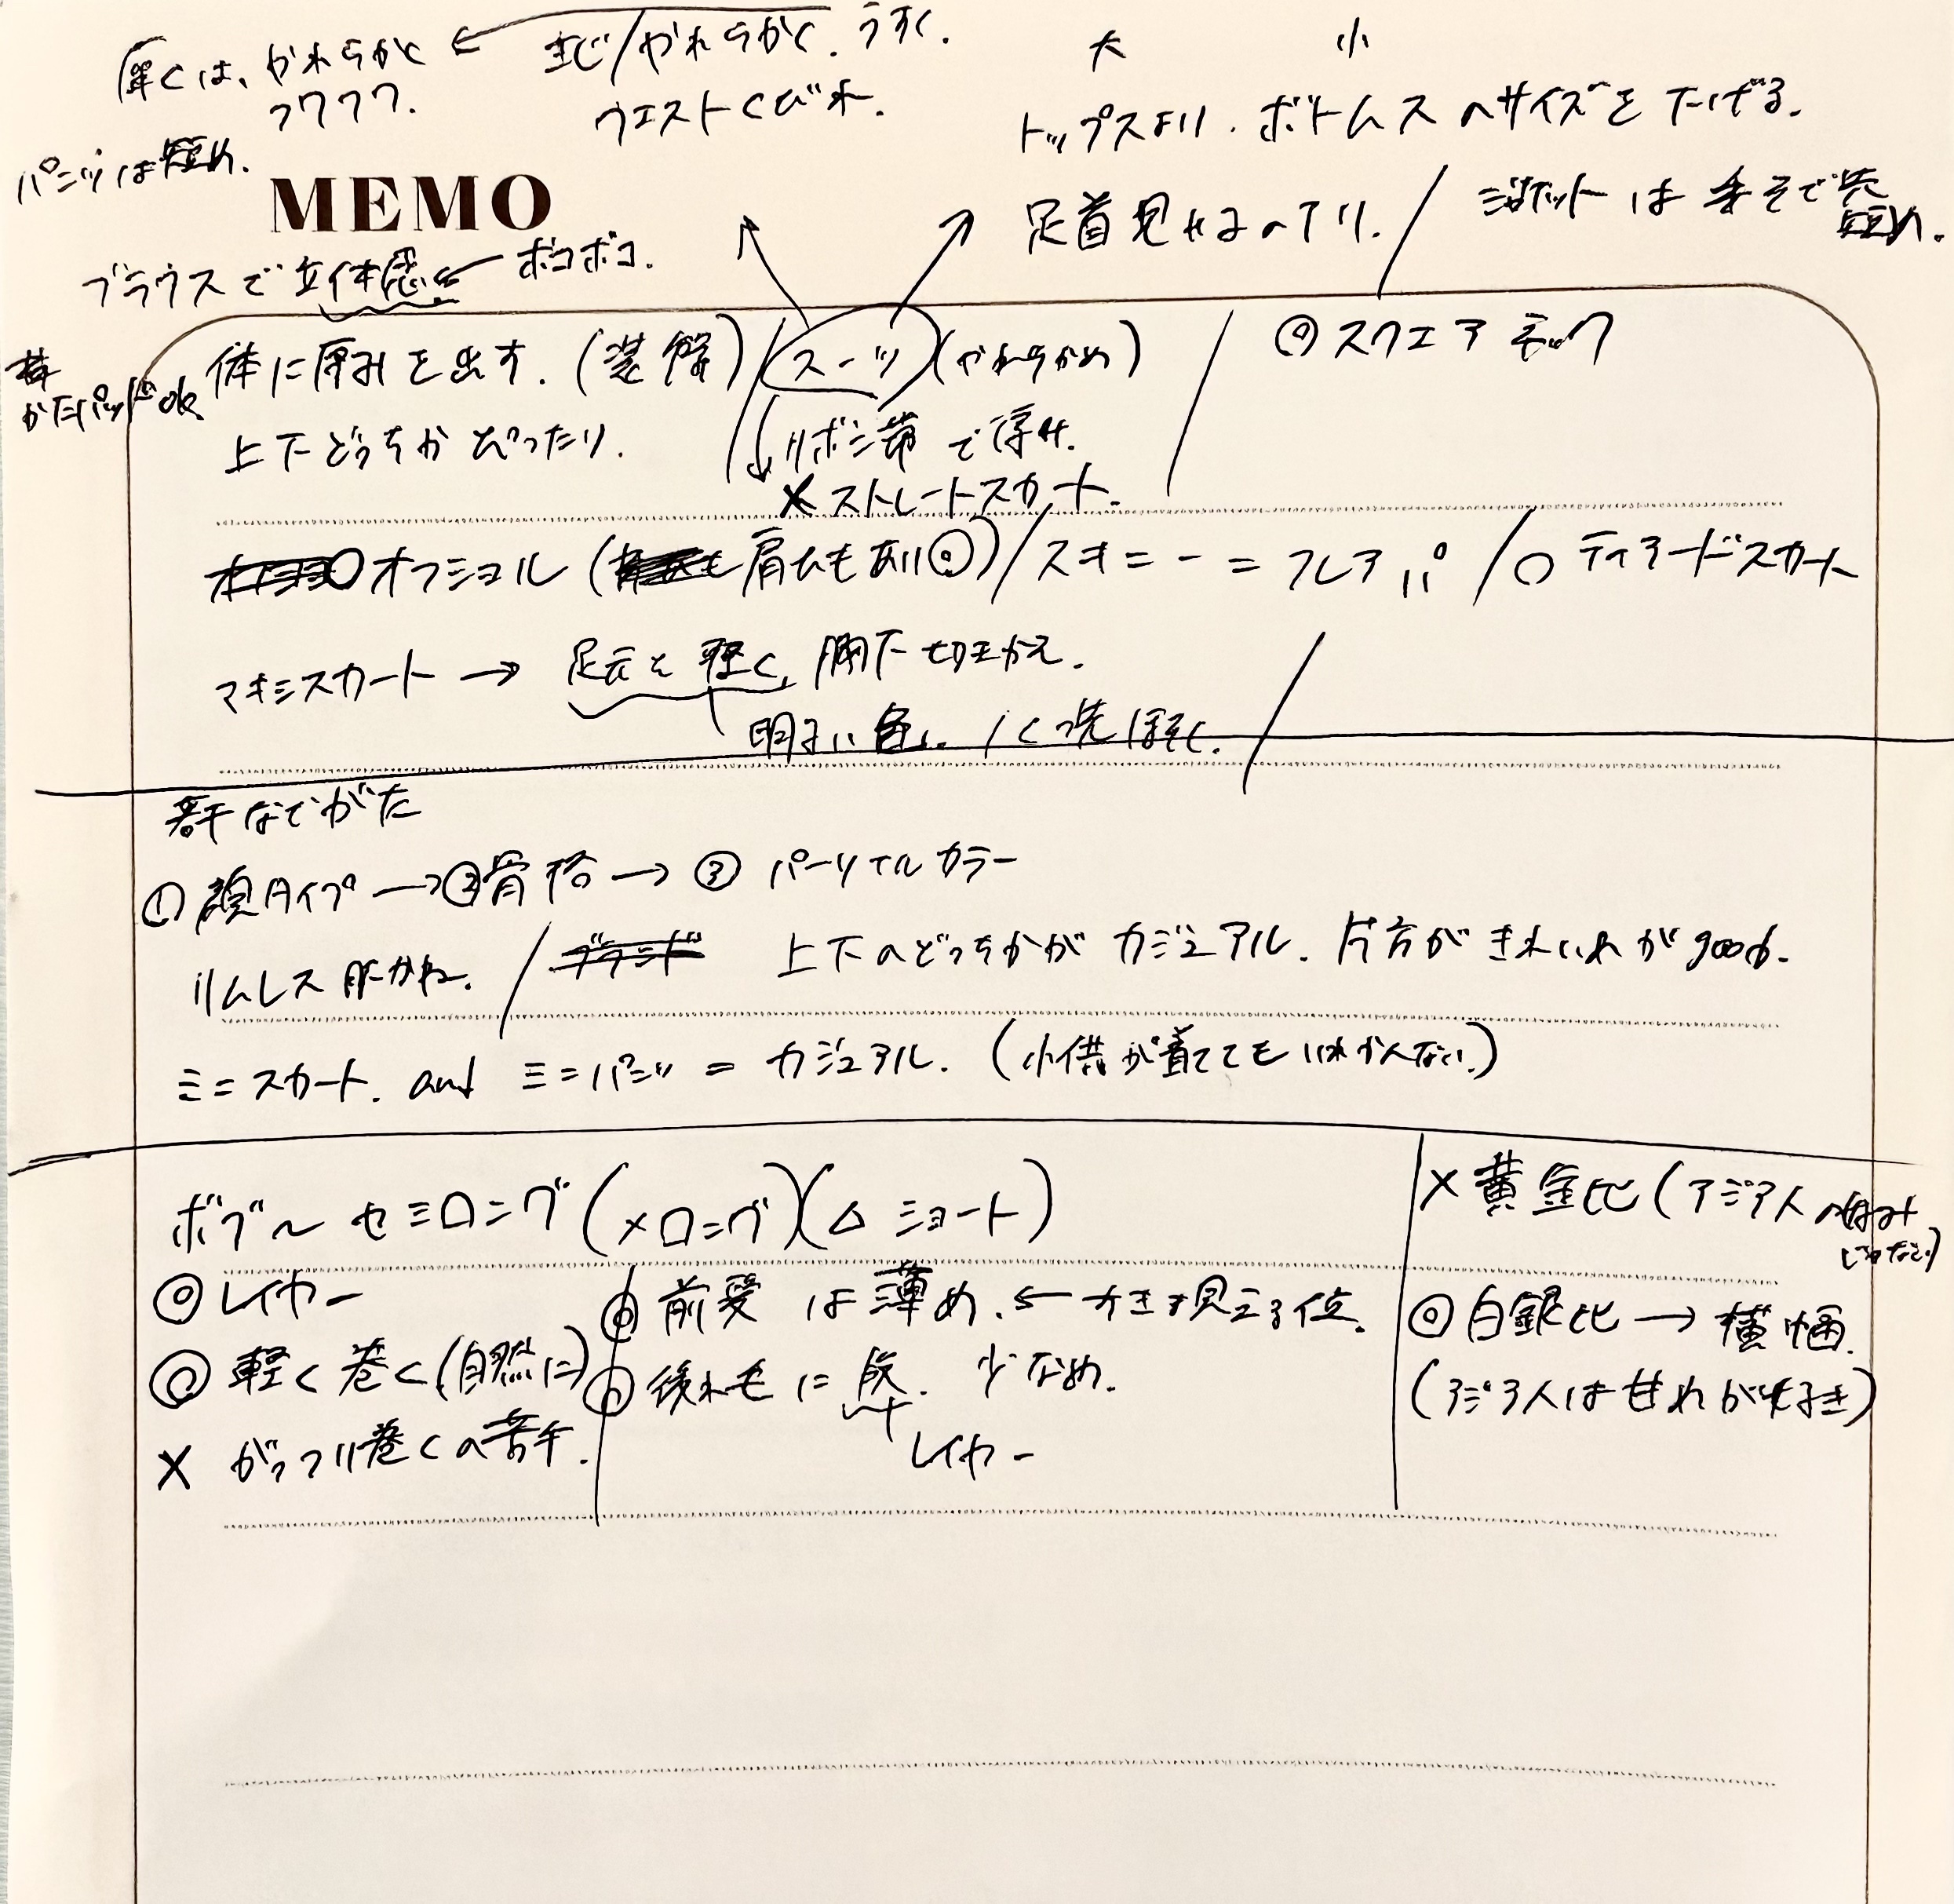 生じ/やわらかく、うすく。
大 小
厚くは、やわらかく
フワフワ。
ウエストくびれ。
トップスより、ボトムスのサイズを下げる。
パンツは短め。
MEMO
足首見せるのアリ。/ ジャケットは 袖
短め。
ブラウスで立体感を ← ボコボコ。
体に厚みを出す。(装飾)/スーツ(やわらかめ) / ◎スクエアネック
かたパッドok
上下どっちかぴったり。
リボン 帯で
×ストレートスカート。
オフショル(肩ひもあり◎)/スキニー=フレアパ / ○ティアードスカート
マキシスカート → 足元を軽く、胸下切りかえ。
明るい色、くつ先ほそく。
若干なでがた
①顔タイプ→②骨格→③パーソナルカラー
リムレス / 上下のどっちかがカジュアル、片方がきれいめがgood。
ミニスカート、and ミニパンツ=カジュアル。(小供が着ててもいわかんない。)
ボブ〜セミロング(×ロング)(△ショート)
×黄金比(アジア人の好み
じゃない)
◎レイヤー
◎前髪は薄め。←すき見える位。
◎白銀比→横幅。
◎軽く巻く(自然に)
◎後れ毛に段。少なめ。
(アジア人は甘めが好き)
× がっつり巻くの苦手。
レイヤー